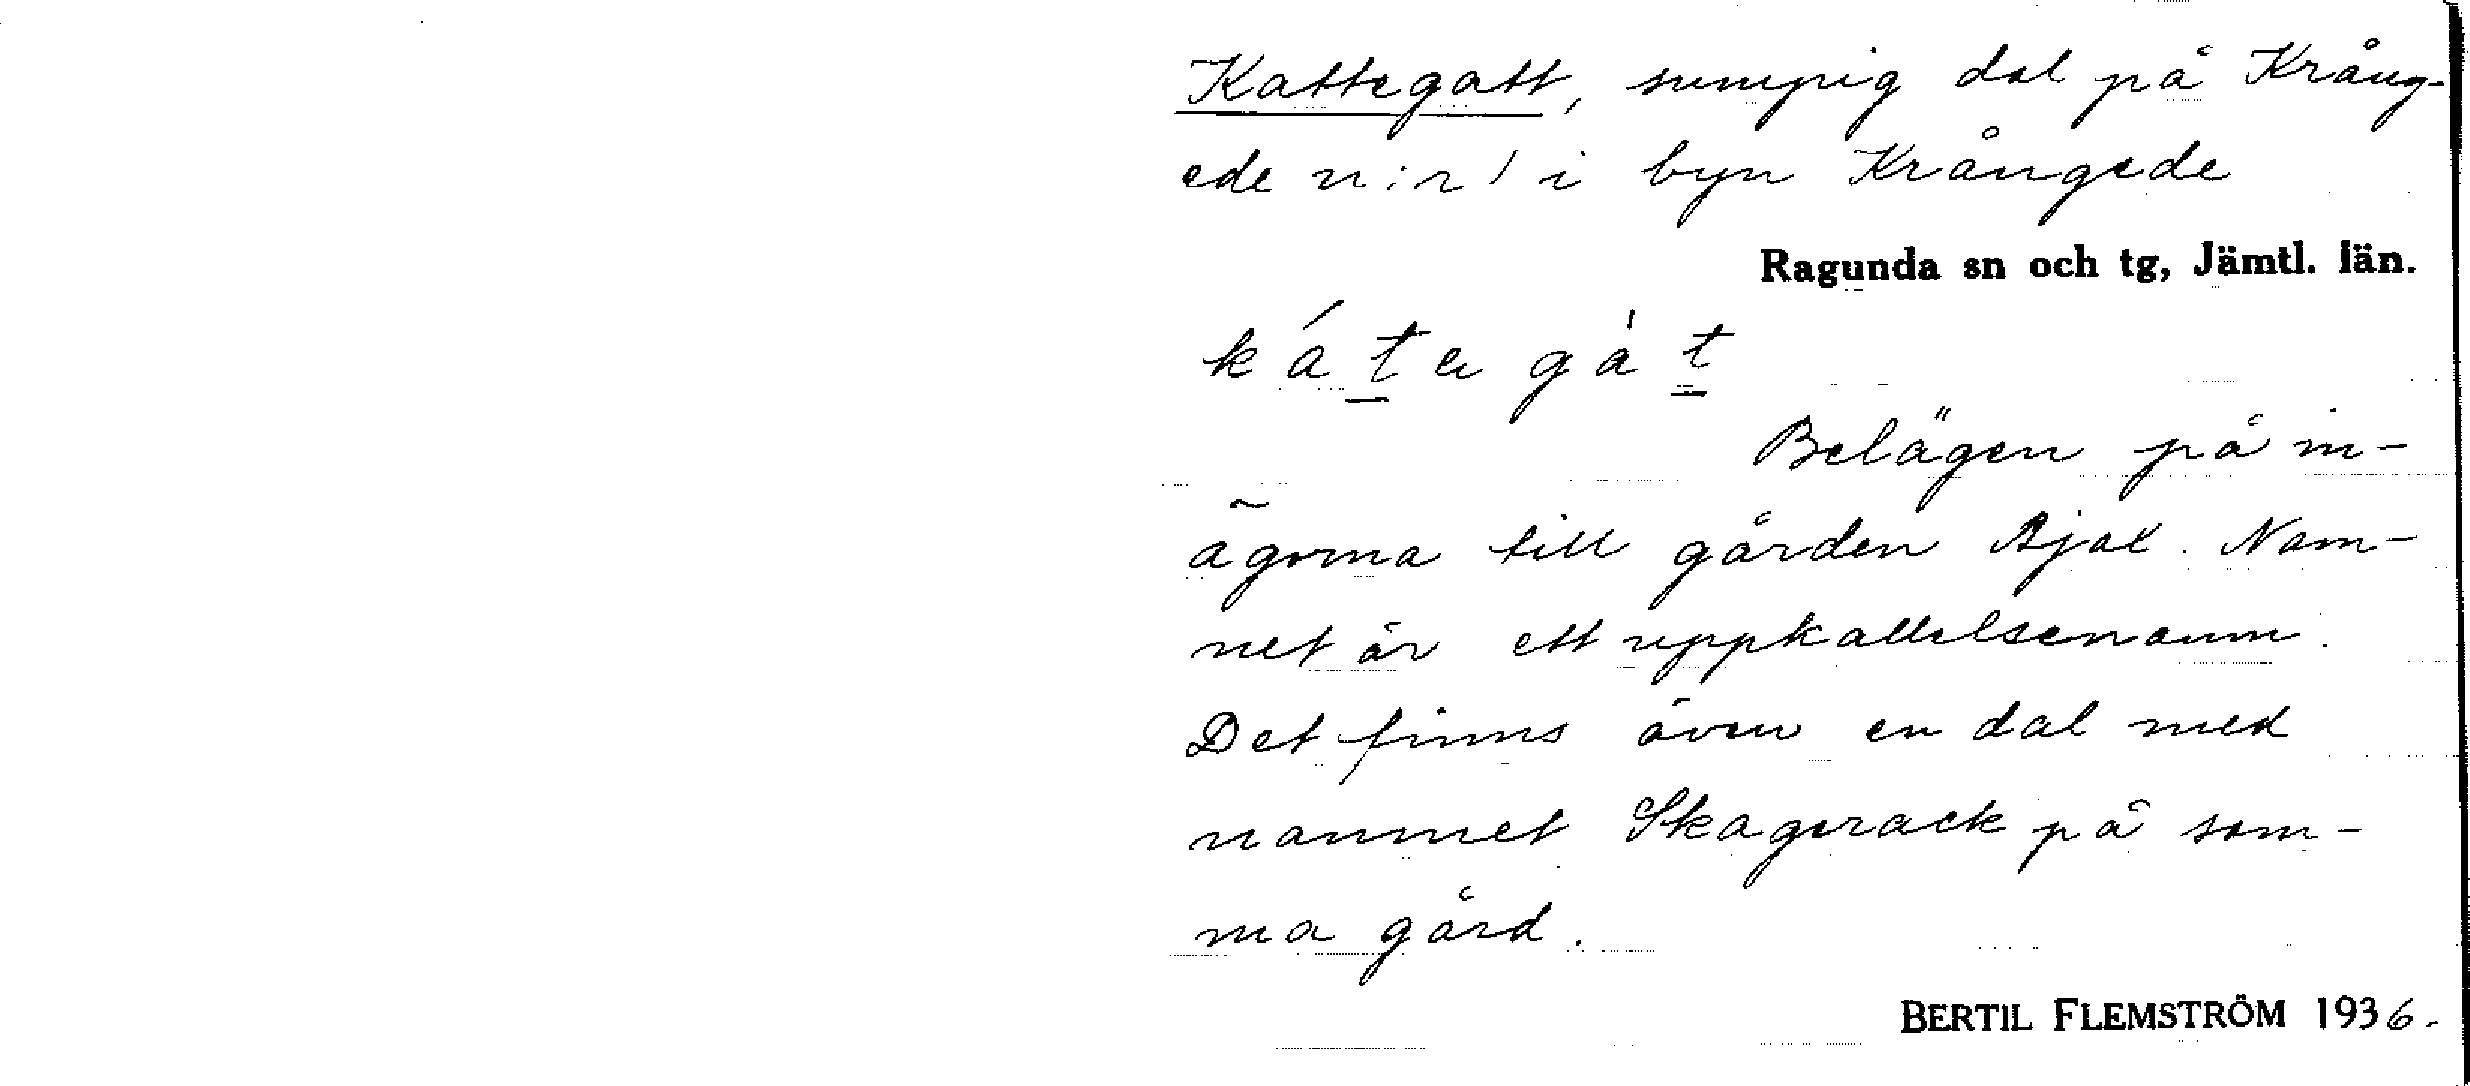 Kattegatt, sumpig dal på Krång-
ede n:r 1 i byn Krångede
Ragunda sn och tg, Jämtl. län.
Belägen på in-
ägorna till gården Bjal. Nam-
net är ett uppkallelsenamn.
Det finns även en dal med
namnet Skagerack på sam-
ma gård.
BERTIL FLEMSTRÖM 1936.